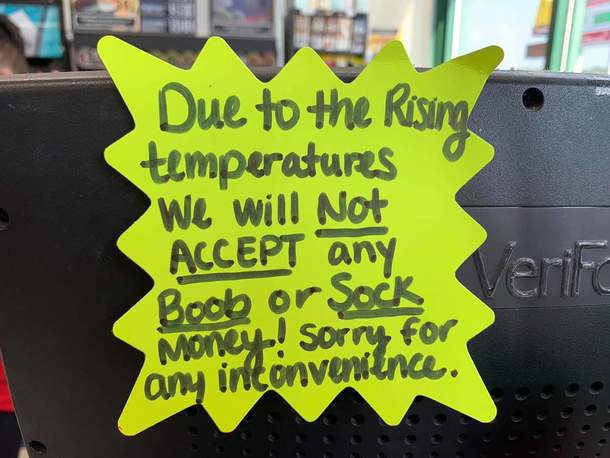 Due to the Rising
temperatures
We will Not
ACCEPT any
Boob or Sock
Money! sorry for
any inconvenience.